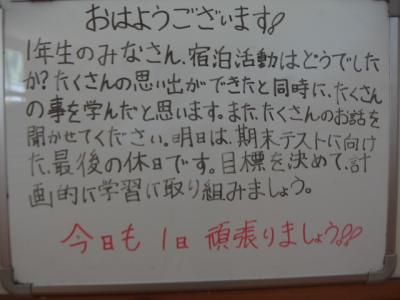 おはようございます!!
1年生のみなさん、宿泊活動はどうでした
か?たくさんの思い出ができたと同時に、たくさん
の事を学んだと思います。また、たくさんのお話を
聞かせてください。明日は、期末テストに向け
た、最後の休日です。目標を決めて、計
画的に学習に取り組みましょう。
今日も1日頑張りましょう!!!